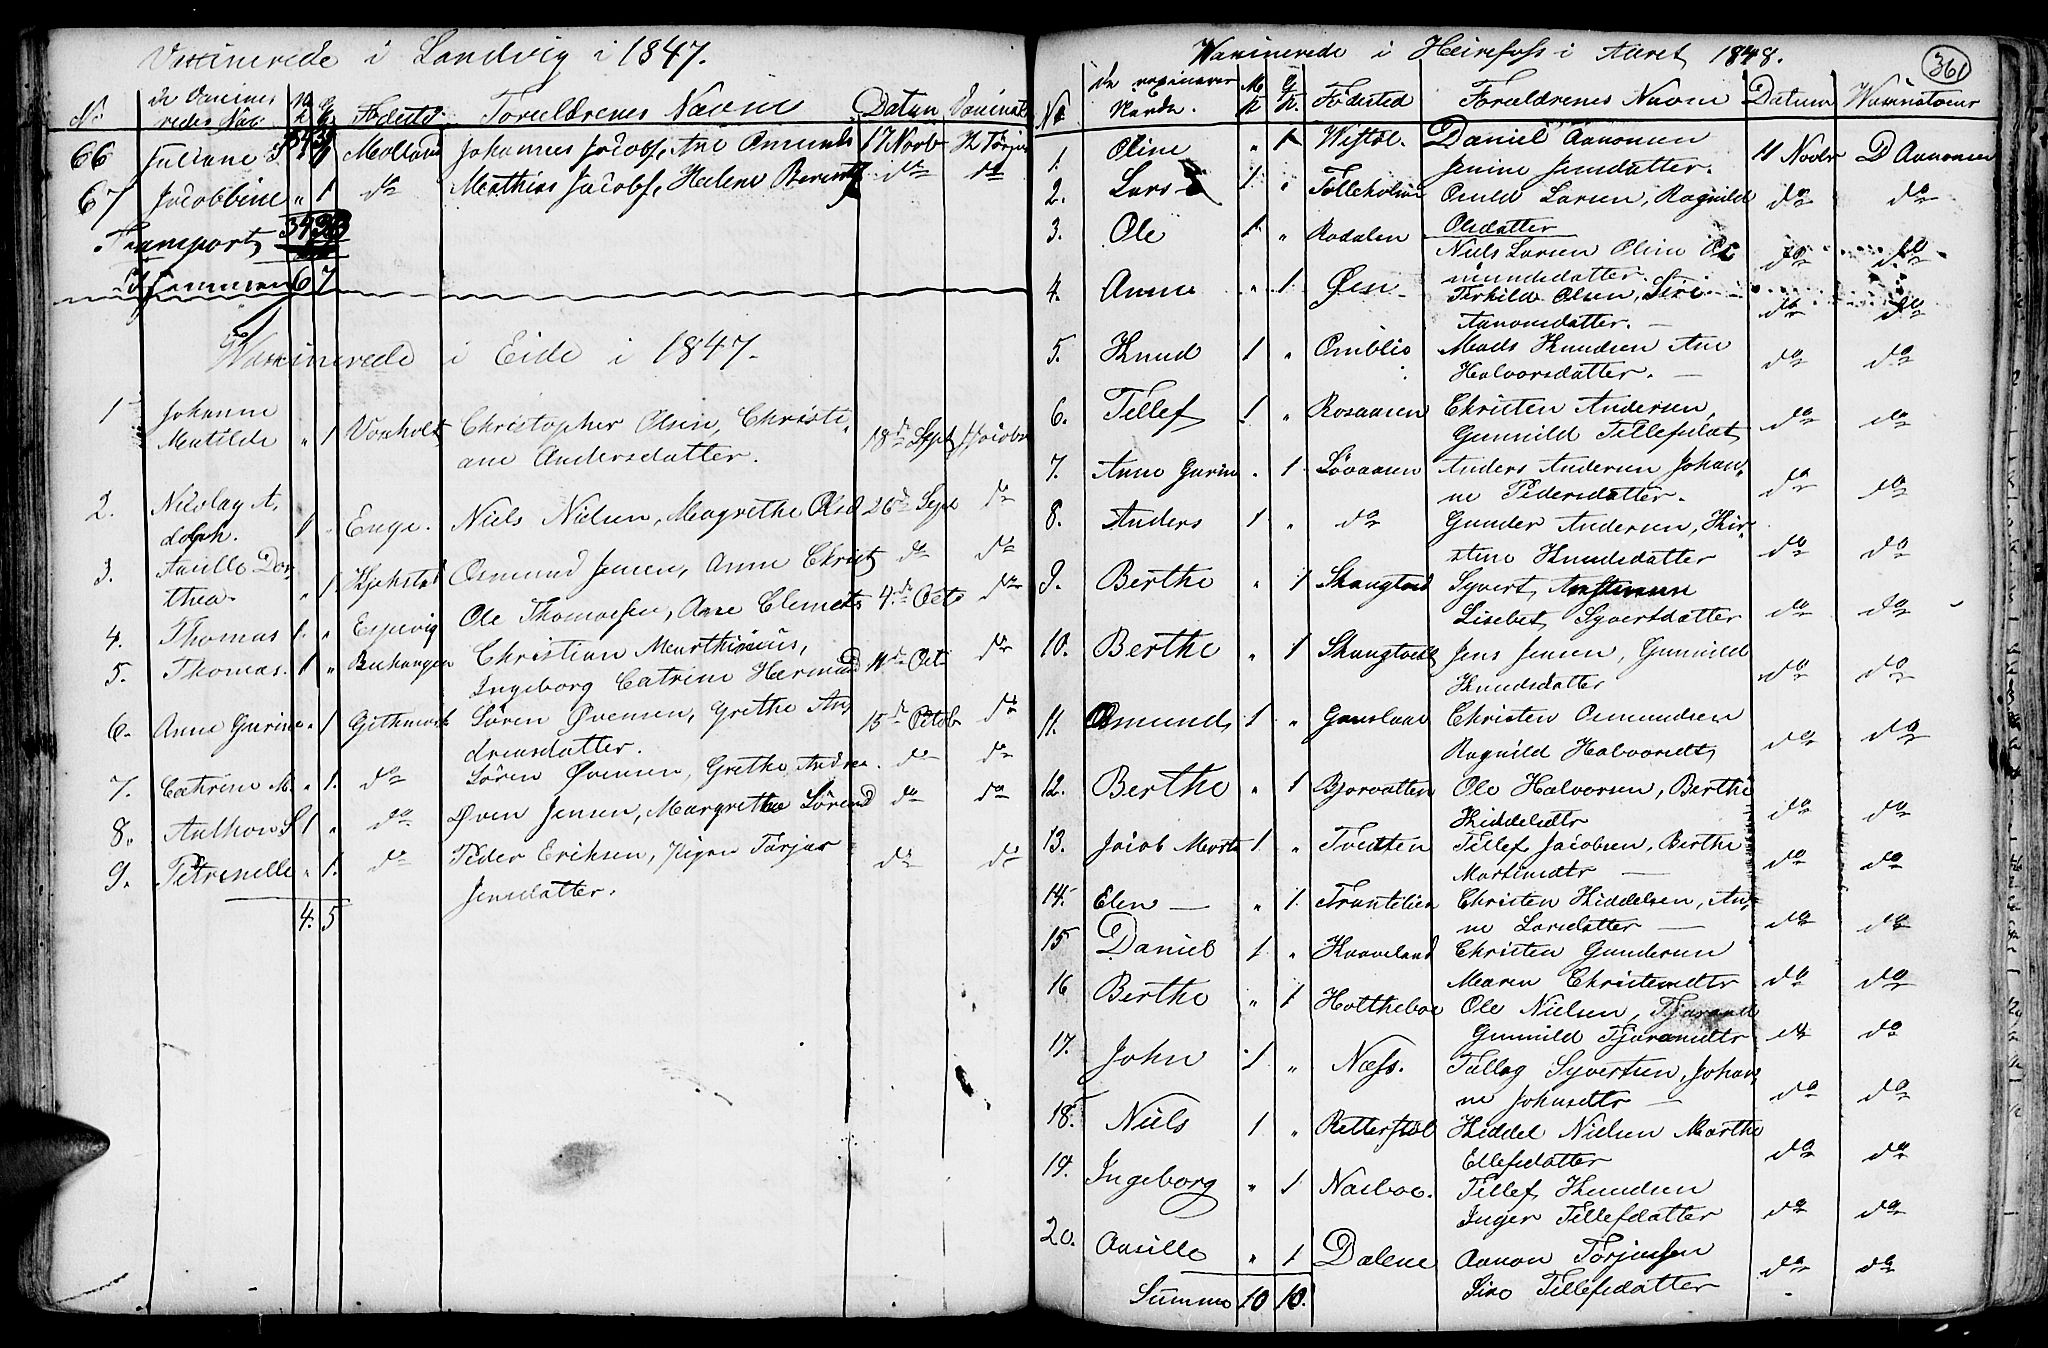 Vaxinerede i Landvig i 1847.
No de Vaxineredes Nav. M.k. Q.k. Fødested. Forældrenes Navne Datum Vaxinat.
66 Juliane Molland Johannes Jacobs., Ane Omunds 17 Novb H Törjus
67 Jacobbine " 1 do Mathias Jacobs, Helene Berents do do
Transport 34 33
Sammen 67
Vaxinerede i Eide i 1847.
1 Johanne
Matilde " 1 Vonholt Christopher Olsen, Christi-
ane Andersdatter. 18de Sept HJacobs
2. Nicolay A-
dolph. 1 " Enge. Niels Nielsen, Magrethe Olsd 26de Sept do
3. Aasille Dor-
thea. " 1 Osmund Jensen, Anne Christ do do
4. Thomas 1. " Espevig Ole Thomassen, Ane Clemets 4de Octo do
5. Thomas. 1 " Christian Marthinius,
Ingeborg Catrine Hermand 11de Oct do
6. Anne Gurine " 1 Githmark Sören Øvensen, Grethe An-
dreasdatter. 15de Octob do
7. Cathrine M. " 1. do Sören Øvensen, Grethe Andrea. do do
8. Anthon S 1 " do Øven Jensen, Margrethe Sörend do do
9. Petrenelle " 1. do Peder Eriksen, Torjus
Jensdatter. do do
4. 5
361
Waxinerede i Heirefoss i Aaret 1848.
No de vaxinerer Navne. M.k. Q.k. Födested Forældrenes Navne Datum Waxinateur
1. Oline " 1 Wistöl. Daniel Aanonsen
Jenine Jensdatter. 11 Novbr D Aanonsen
2. Lars 1 " Tolleholmen Omund Larsen, Ragnild
Olsdatter do do
3. Ole 1 " Rodalen Niels Larsen Oline Os-
mundsdatter. do do
4. Anne " 1 Øen Terkild Olsen, Siri
Aanonsdatter. — do do
5. Knud 1 " Omblie Mads Knudsen Ane
Halvorsdatter. — do do
6. Tellef 1 " Rosaasen Christen Andersen,
Gunnild Tellefsdat do do
7. Anne Gurine " 1 Lövaasen Anders Andersen Johan-
ne Pedersdatter. do do
8. Anders 1 " do Gunder Andersen, Kir-
stine Knudsdatter do do
9. Berthe " 1 Skaugtvedt Syvert
Lisebet Syvertsdatter do do
10. Berthe " 1 Skaugtvedt Jens Jensen, Gunnild
Knudsdatter do do
11. Osmund 1 " Gauslaae Christen Osmundsen
Ragnild Halvorsdt do do
12. Berthe " 1 Bjorvatten Ole Halvorsen, Berthe
Kiddelsdtr do do
13. Jacob Mart. 1 " Tvedten Tellef Jacobsen, Berthe
Martinsdtr — do do
14. Elen — " 1. Trantelien Christen Kiddelsen, An-
ne Larsdatter — do do
15 Daniel 1 " Haaveland Christen Gundersen
Maren Christensdtr do do
16 Berthe " 1 Holtheboe Ole Nielsen, Tjorand
Gunnild Tjorandsdtr do do
17. John 1 " Næss. Tallag Syvertsen, Johan-
ne Johnsdtr — do do
18. Niels 1 " Retterstöl Kiddel Nielsen Marthe
Ellefsdatter do do
19. Ingeborg " 1 Næsboe. Tellef Knudsen
Inger Tellefdatter do do
20. Aasille " 1 Dalene Aanon Torjussen
Siro Tellefsdatter do do
Summa 10 10.